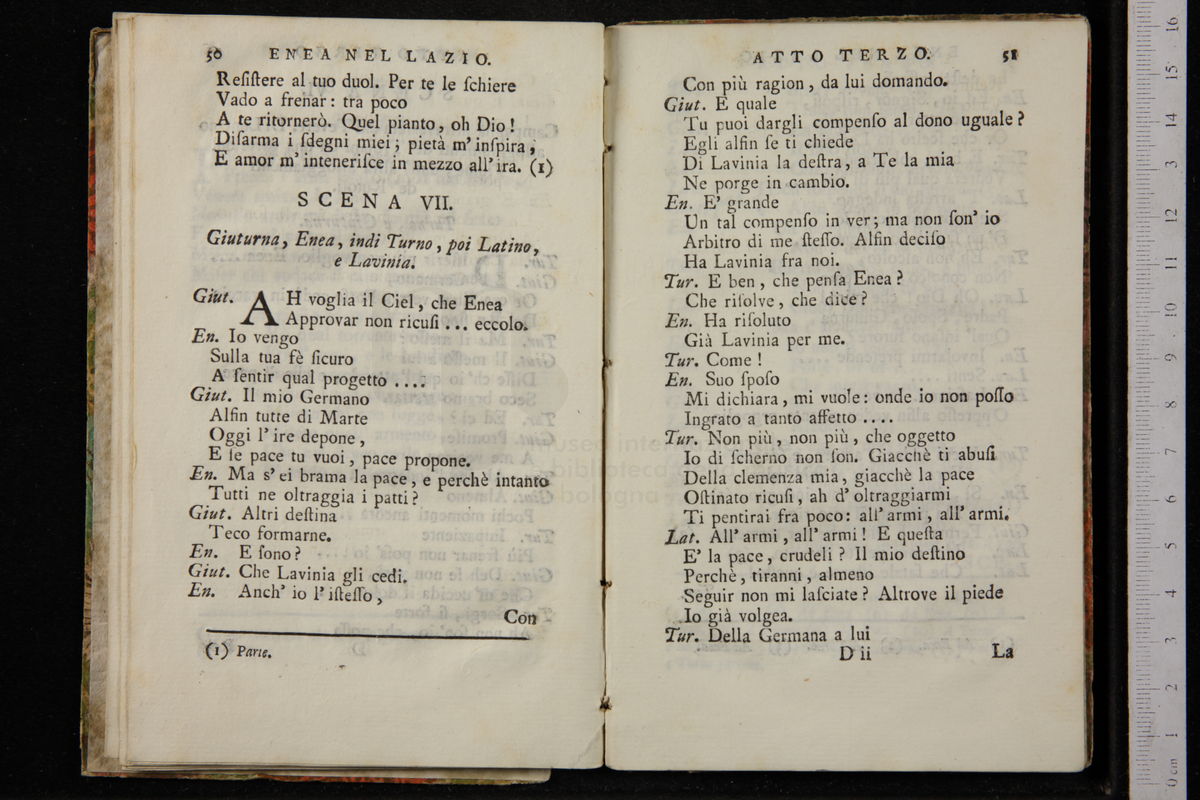 50 ENEA NEL LAZIO.
Reſiſtere al tuo duol. Per te le ſchiere
Vado a frenar: tra poco
A te ritornerò. Quel pianto, oh Dio!
Diſarma i ſdegni miei; pietà m' inſpira,
E amor m' inteneriſce in mezzo all' ira. (1)
SCENA VII.
Giuturna, Enea, indi Turno, poi Latino,
e Lavinia.
Giut. AH voglia il Ciel, che Enea
Approvar non ricuſi ... eccolo.
En. Io vengo
Sulla tua fè ſicuro
A ſentir qual progetto ....
Giut. Il mio Germano
Alfin tutte di Marte
Oggi l' ire depone,
E ſe pace tu vuoi, pace propone.
En. Ma s' ei brama la pace, e perchè intanto
Tutti ne oltraggia i patti?
Giut. Altri deſtina
Teco formarne.
En. E ſono?
Giut. Che Lavinia gli cedi.
En. Anch' io l' iſteſſo,
Con
(1) Parte.
ATTO TERZO. 51
Con più ragion, da lui domando.
Giut. E quale
Tu puoi dargli compenſo al dono uguale?
Egli alfin ſe ti chiede
Di Lavinia la deſtra, a Te la mia
Ne porge in cambio.
En. E' grande
Un tal compenſo in ver; ma non ſon' io
Arbitro di me ſteſſo. Alfin deciſo
Ha Lavinia fra noi.
Tur. E ben, che penſa Enea?
Che riſolve, che dice?
En. Ha riſoluto
Già Lavinia per me.
Tur. Come!
En. Suo ſpoſo
Mi dichiara, mi vuole: onde io non poſſo
Ingrato a tanto affetto ....
Tur. Non più, non più, che oggetto
Io di ſcherno non ſon. Giacchè ti abuſi
Della clemenza mia, giacchè la pace
Oſtinato ricuſi, ah d' oltraggiarmi
Ti pentirai fra poco: all' armi, all' armi.
Lat. All' armi, all' armi! E queſta
E' la pace, crudeli? Il mio deſtino
Perchè, tiranni, almeno
Seguir non mi laſciate? Altrove il piede
Io già volgea.
Tur. Della Germana a lui
D ii La